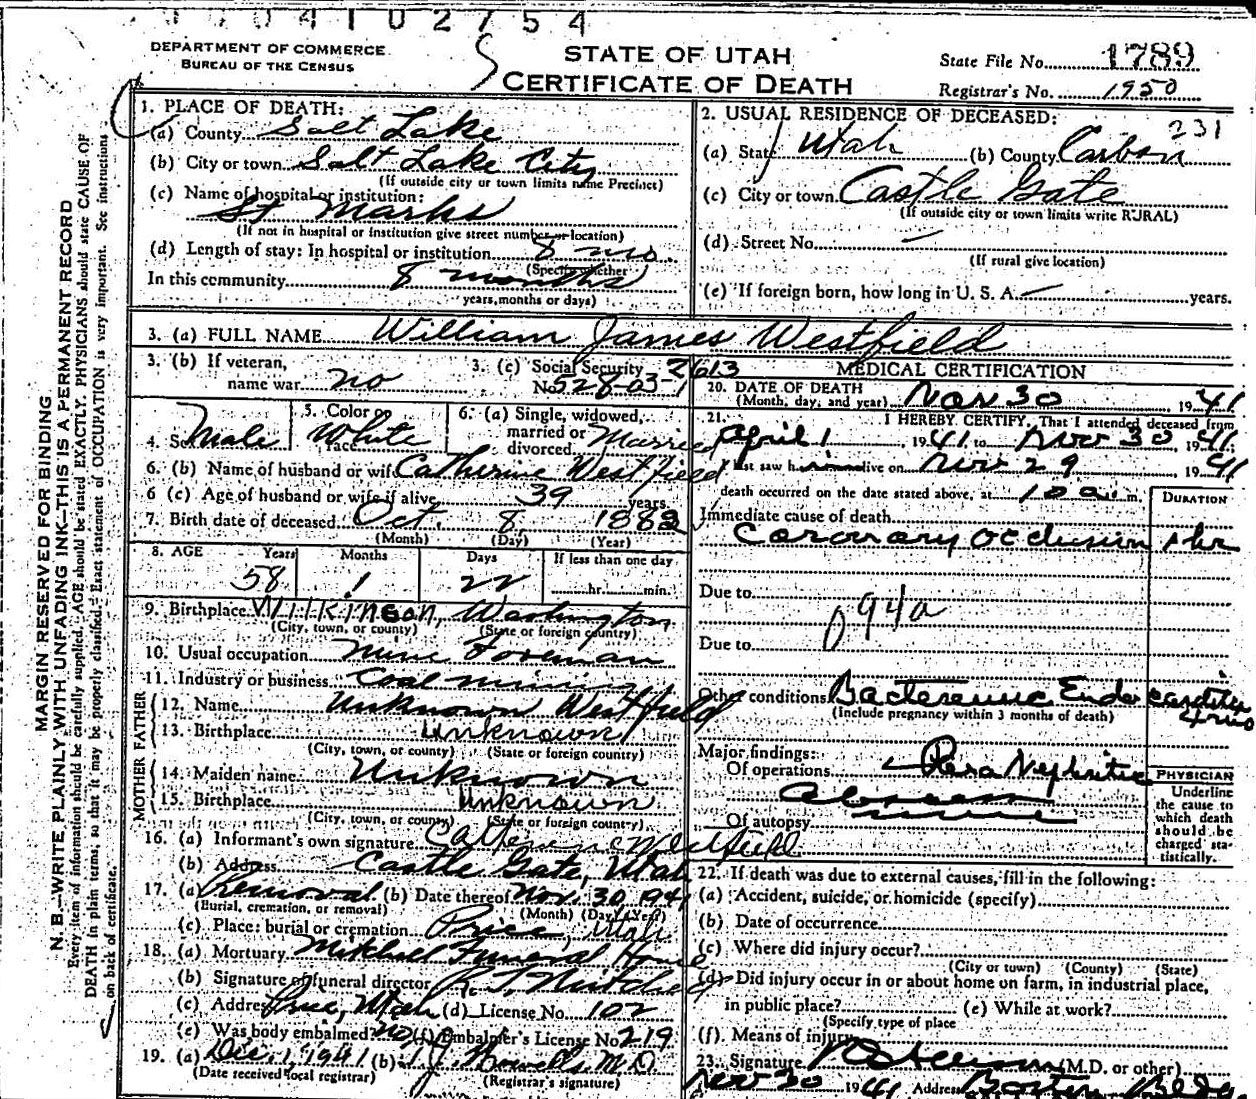 17 04102754
DEPARTMENT OF COMMERCE
BUREAU OF THE CENSUS
STATE OF UTAH
CERTIFICATE OF DEATH
State File No. 1789
Registrar's No. 1950
MARGIN RESERVED FOR BINDING
N. B.—WRITE PLAINLY WITH UNFADING INK—THIS IS A PERMANENT RECORD
Every item of information should be carefully supplied. AGE should be stated EXACTLY. PHYSICIANS should state CAUSE OF
DEATH in plain terms, so that it may be properly classified. Exact statement of OCCUPATION is very important. See instructions
on back of certificate.
1. PLACE OF DEATH:
(a) County Salt Lake
(b) City or town Salt Lake City
(If outside city or town limits name Precinct)
(c) Name of hospital or institution:
St Marks
(If not in hospital or institution give street number or location)
(d) Length of stay: In hospital or institution 8 mo.
(Specify whether
In this community 8 months
years, months or days)
2. USUAL RESIDENCE OF DECEASED:
231
(a) State Utah (b) County Carbon
(c) City or town Castle Gate
(If outside city or town limits write RURAL)
(d) Street No. —
(If rural give location)
(e) If foreign born, how long in U. S. A. — years.
3. (a) FULL NAME William James Westfield
3. (b) If veteran, name war no
3. (c) Social Security No. 528-03-2613
4. Sex Male
5. Color or race White
6. (a) Single, widowed, married or divorced Married
6. (b) Name of husband or wife Catherine Westfield
6 (c) Age of husband or wife if alive 39 years
7. Birth date of deceased Oct. 8 1883
(Month) (Day) (Year)
8. AGE Years Months Days If less than one day
58 1 22 hr. min.
9. Birthplace Wilkinson, Washington
(City, town, or county) (State or foreign country)
10. Usual occupation Mine Foreman
11. Industry or business Coal mining
FATHER
12. Name Unknown Westfield
13. Birthplace Unknown
(City, town, or county) (State or foreign country)
MOTHER
14. Maiden name Unknown
15. Birthplace Unknown
(City, town, or county) (State or foreign country)
16. (a) Informant's own signature Catherine Westfield
(b) Address Castle Gate, Utah
17. (a) Removal (b) Date thereof Nov. 30 1941
(Burial, cremation, or removal) (Month) (Day) (Year)
(c) Place: burial or cremation Price, Utah
18. (a) Mortuary Mitchell Funeral Home
(b) Signature of funeral director
(c) Address Price, Utah (d) License No. 102
(e) Was body embalmed? no (f) Embalmer's License No. 219
19. (a) Dec. 1, 1941 (b) M.D.
(Date received local registrar) (Registrar's signature)
MEDICAL CERTIFICATION
20. DATE OF DEATH
(Month, day, and year) Nov 30 1941
21. I HEREBY CERTIFY, That I attended deceased from
April 1 1941 to Nov 30 1941
I last saw him alive on Nov 29 1941
death occurred on the date stated above, at 10 a. m.
DURATION
Immediate cause of death
Coronary occlusion 1 hr
Due to
94a
Due to
Other conditions Bactereumic Endocarditis
(Include pregnancy within 3 months of death)
Major findings:
Of operations Para Nephritic
Abscess
Of autopsy none
PHYSICIAN
Underline
the cause to
which death
should be
charged sta-
tistically.
22. If death was due to external causes, fill in the following:
(a) Accident, suicide, or homicide (specify)
(b) Date of occurrence
(c) Where did injury occur?
(City or town) (County) (State)
(d) Did injury occur in or about home on farm, in industrial place,
in public place? (e) While at work?
(Specify type of place
(f). Means of injury
23. Signature (M.D. or other)
Nov 30 1941 Address Boston Bldg